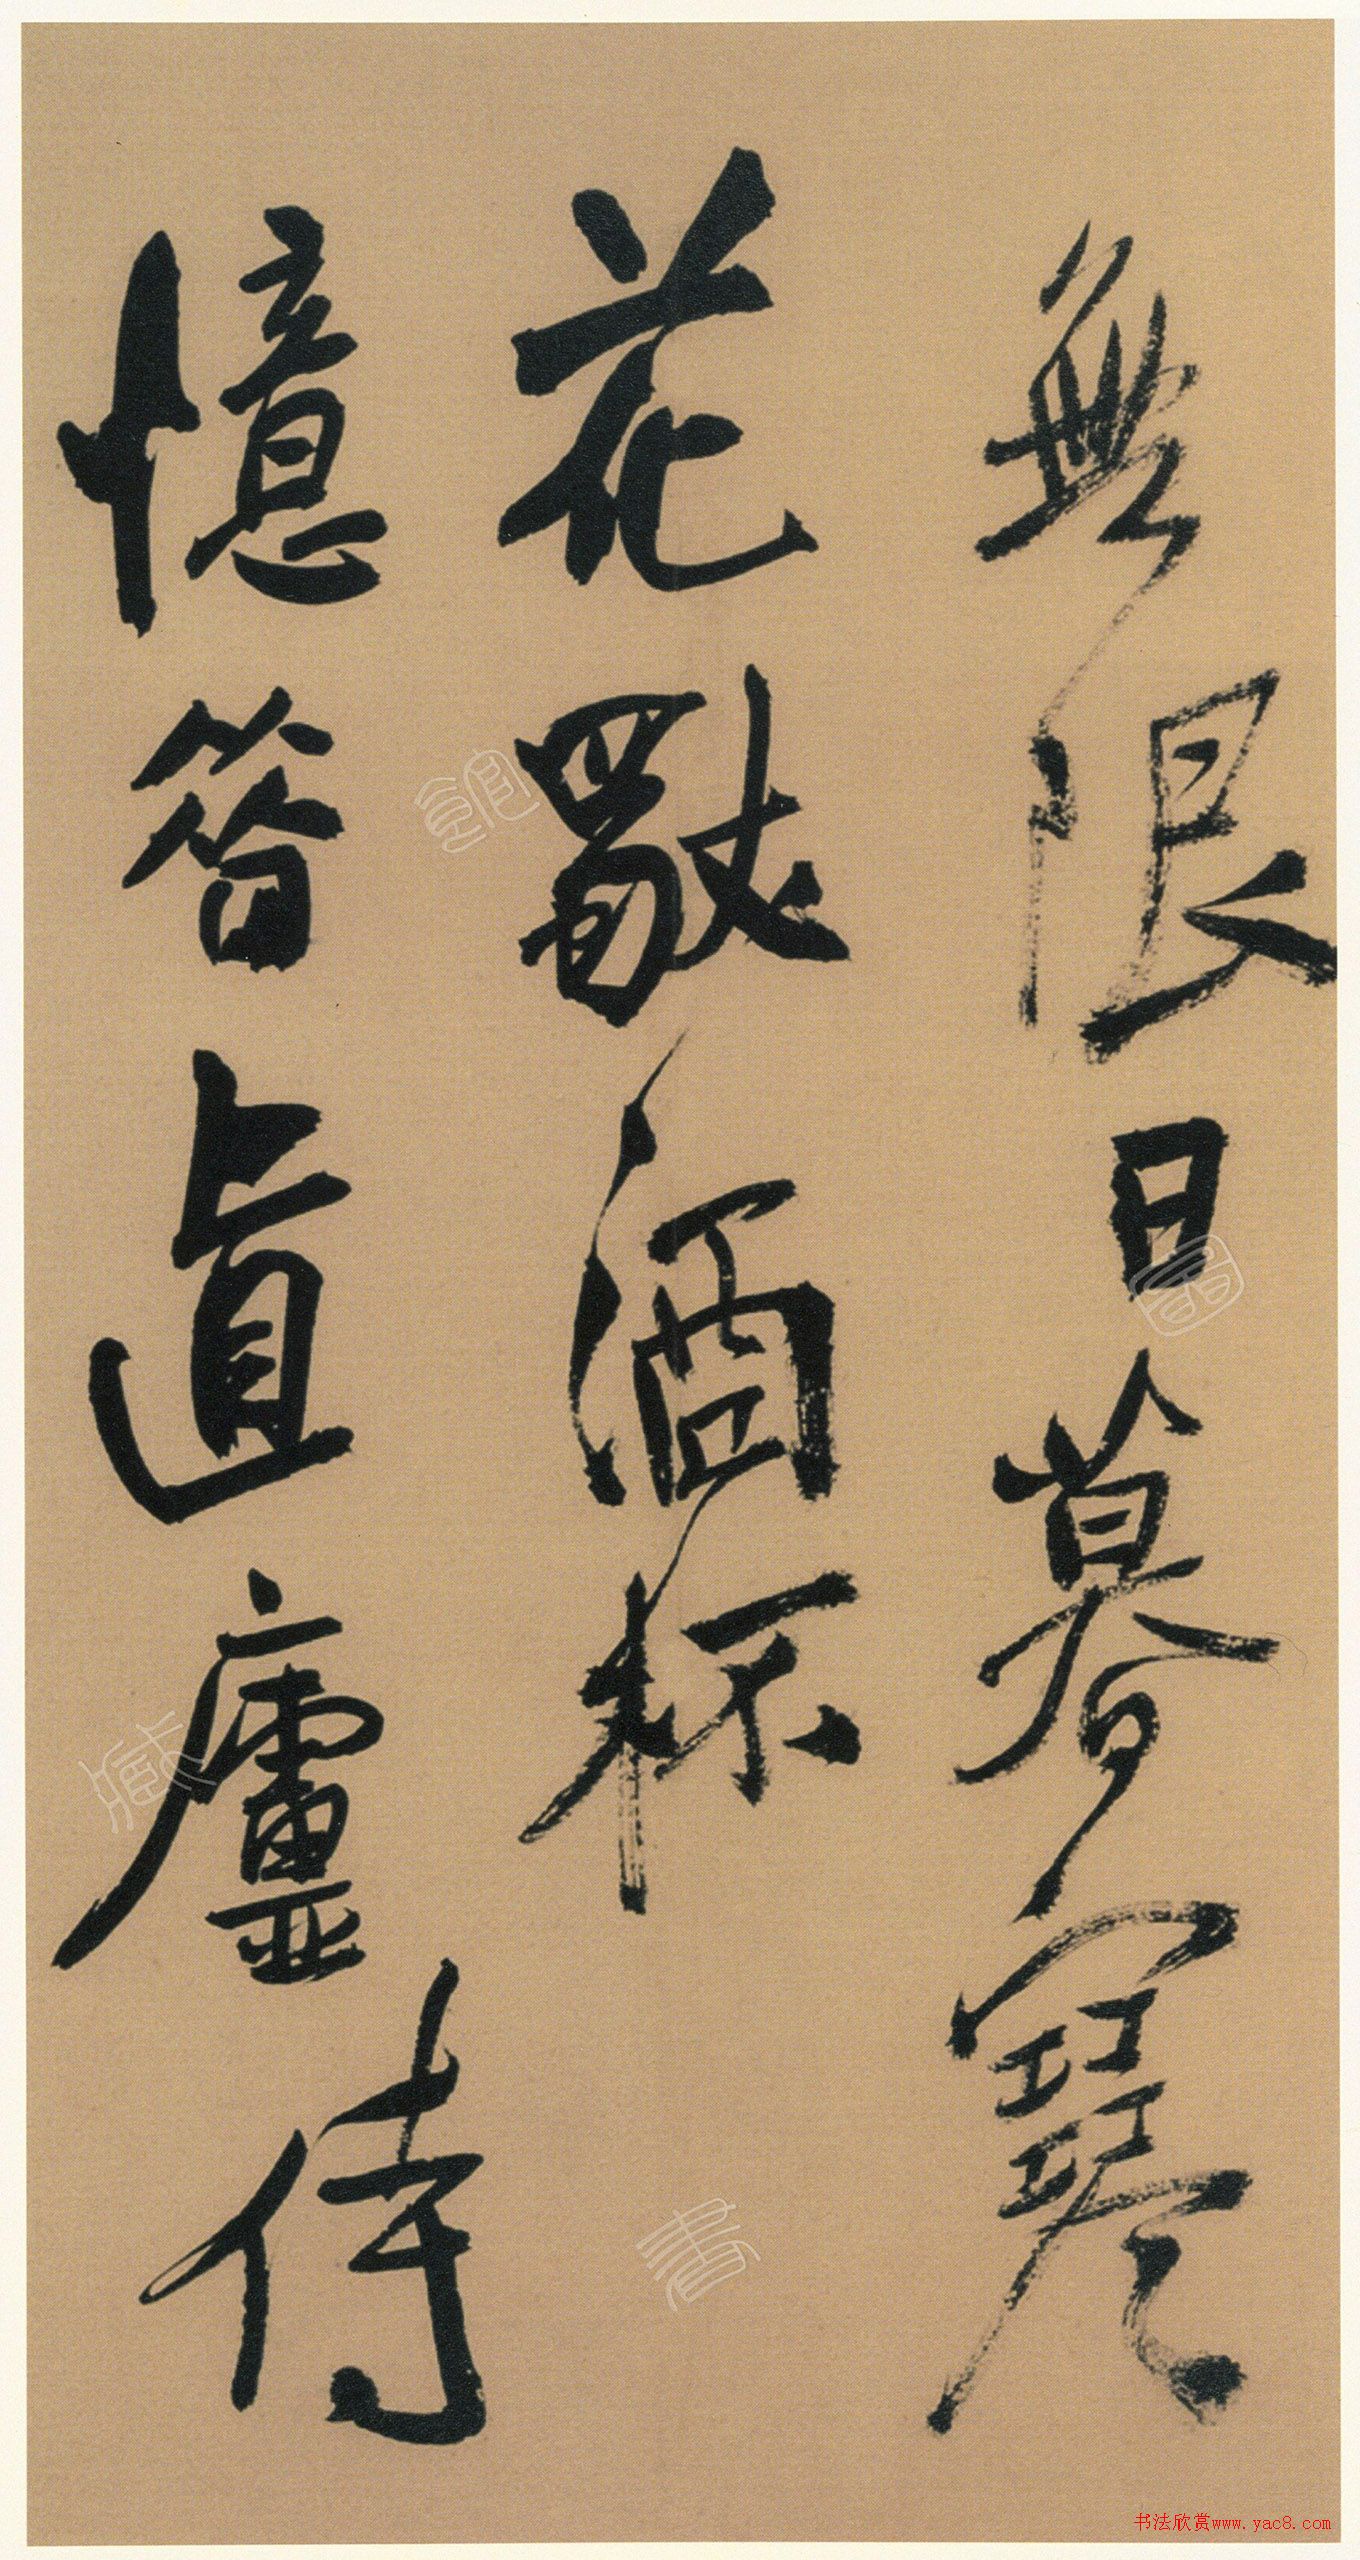 無限日暮寒
花酒杯
憶昔直廬侍
书法欣赏www.yac8.com